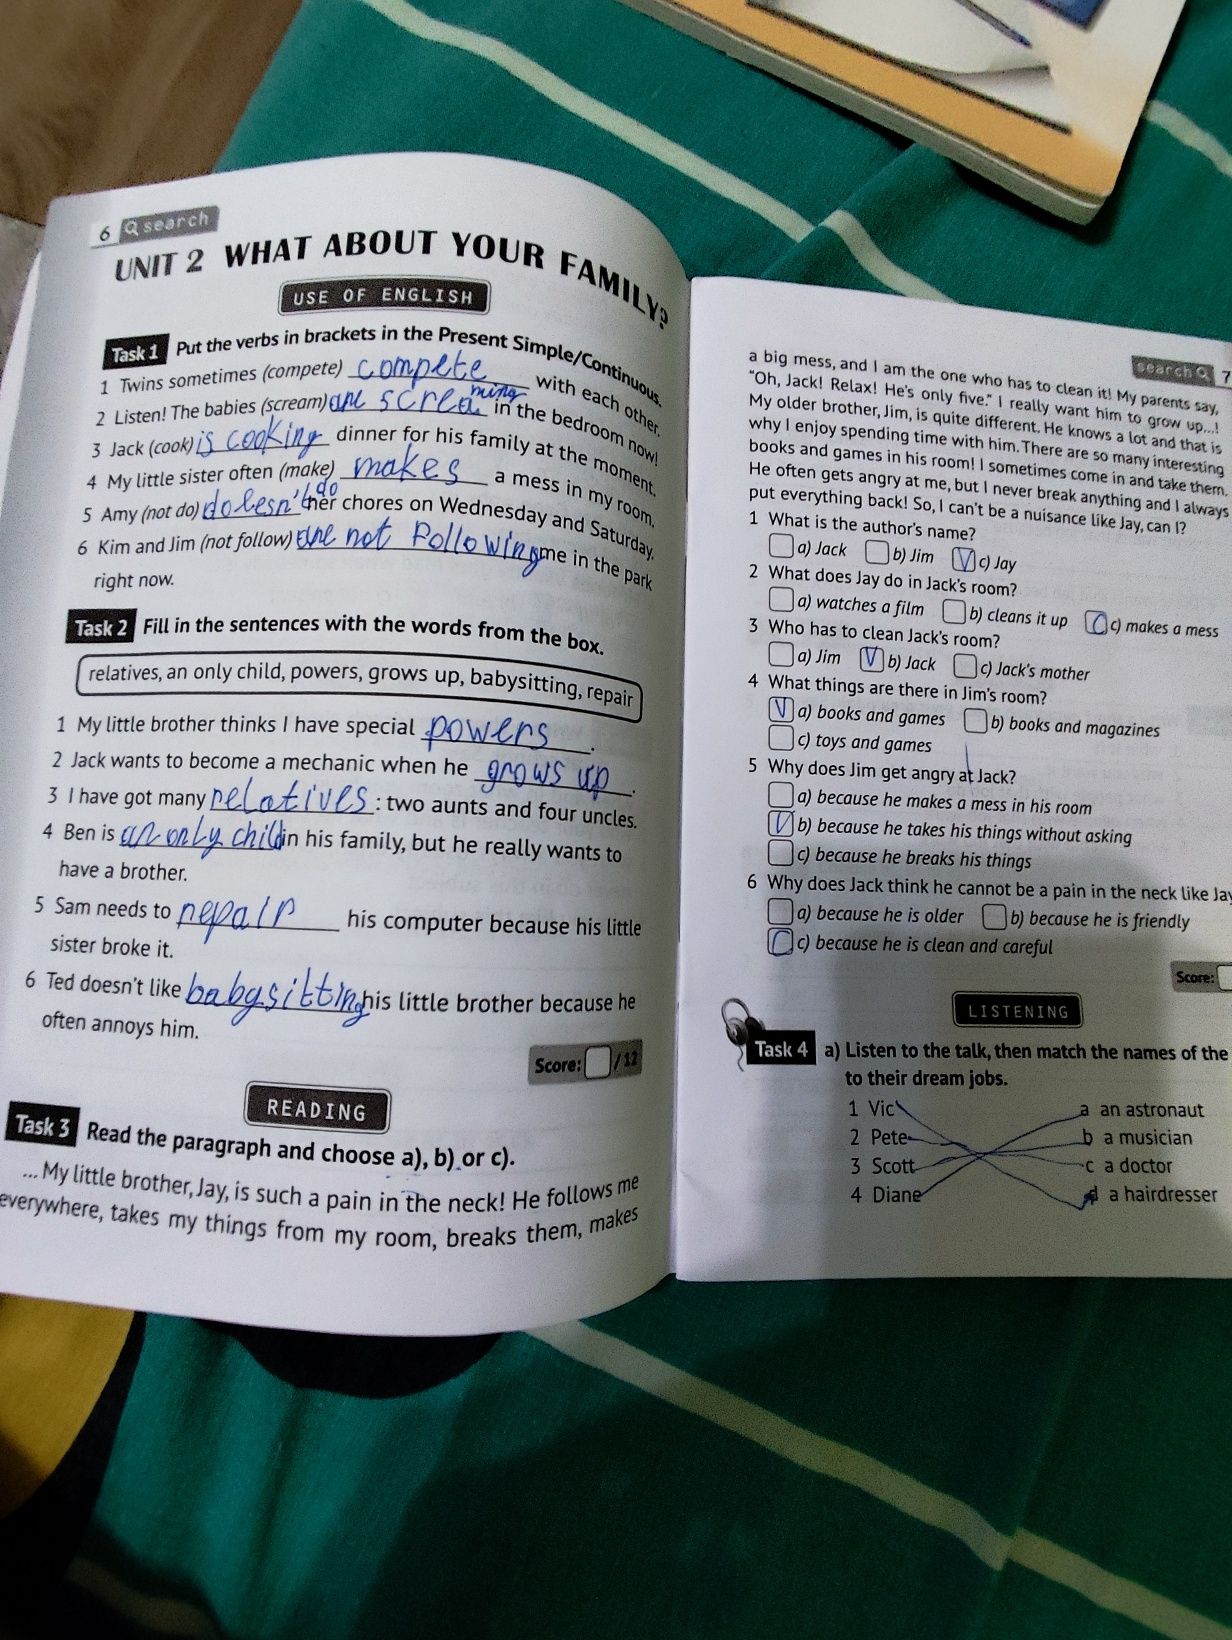 6 search
UNIT 2 WHAT ABOUT YOUR FAMILY?
USE OF ENGLISH
Task 1 Put the verbs in brackets in the Present Simple/Continuous.
1 Twins sometimes (compete) compete with each other.
2 Listen! The babies (scream) are screaming in the bedroom now!
3 Jack (cook) is cooking dinner for his family at the moment.
4 My little sister often (make) makes a mess in my room.
5 Amy (not do) doesn't do her chores on Wednesday and Saturday.
6 Kim and Jim (not follow) are not following me in the park
right now.
Task 2 Fill in the sentences with the words from the box.
relatives, an only child, powers, grows up, babysitting, repair
1 My little brother thinks I have special powers.
2 Jack wants to become a mechanic when he grows up.
3 I have got many relatives: two aunts and four uncles.
4 Ben is an only child in his family, but he really wants to
have a brother.
5 Sam needs to repair his computer because his little
sister broke it.
6 Ted doesn't like babysitting his little brother because he
often annoys him.
Score: /12
READING
Task 3 Read the paragraph and choose a), b) or c).
... My little brother, Jay, is such a pain in the neck! He follows me
everywhere, takes my things from my room, breaks them, makes
search 7
a big mess, and I am the one who has to clean it! My parents say,
“Oh, Jack! Relax! He's only five.” I really want him to grow up...!
My older brother, Jim, is quite different. He knows a lot and that is
why I enjoy spending time with him. There are so many interesting
books and games in his room! I sometimes come in and take them.
He often gets angry at me, but I never break anything and I always
put everything back! So, I can't be a nuisance like Jay, can I?
1 What is the author's name?
a) Jack b) Jim V c) Jay
2 What does Jay do in Jack's room?
a) watches a film b) cleans it up c) makes a mess
3 Who has to clean Jack's room?
a) Jim V b) Jack c) Jack's mother
4 What things are there in Jim's room?
V a) books and games b) books and magazines
c) toys and games
5 Why does Jim get angry at Jack?
a) because he makes a mess in his room
V b) because he takes his things without asking
c) because he breaks his things
6 Why does Jack think he cannot be a pain in the neck like Jay
a) because he is older b) because he is friendly
c) because he is clean and careful
Score:
LISTENING
Task 4 a) Listen to the talk, then match the names of the
to their dream jobs.
1 Vic a an astronaut
2 Pete b a musician
3 Scott c a doctor
4 Diane d a hairdresser